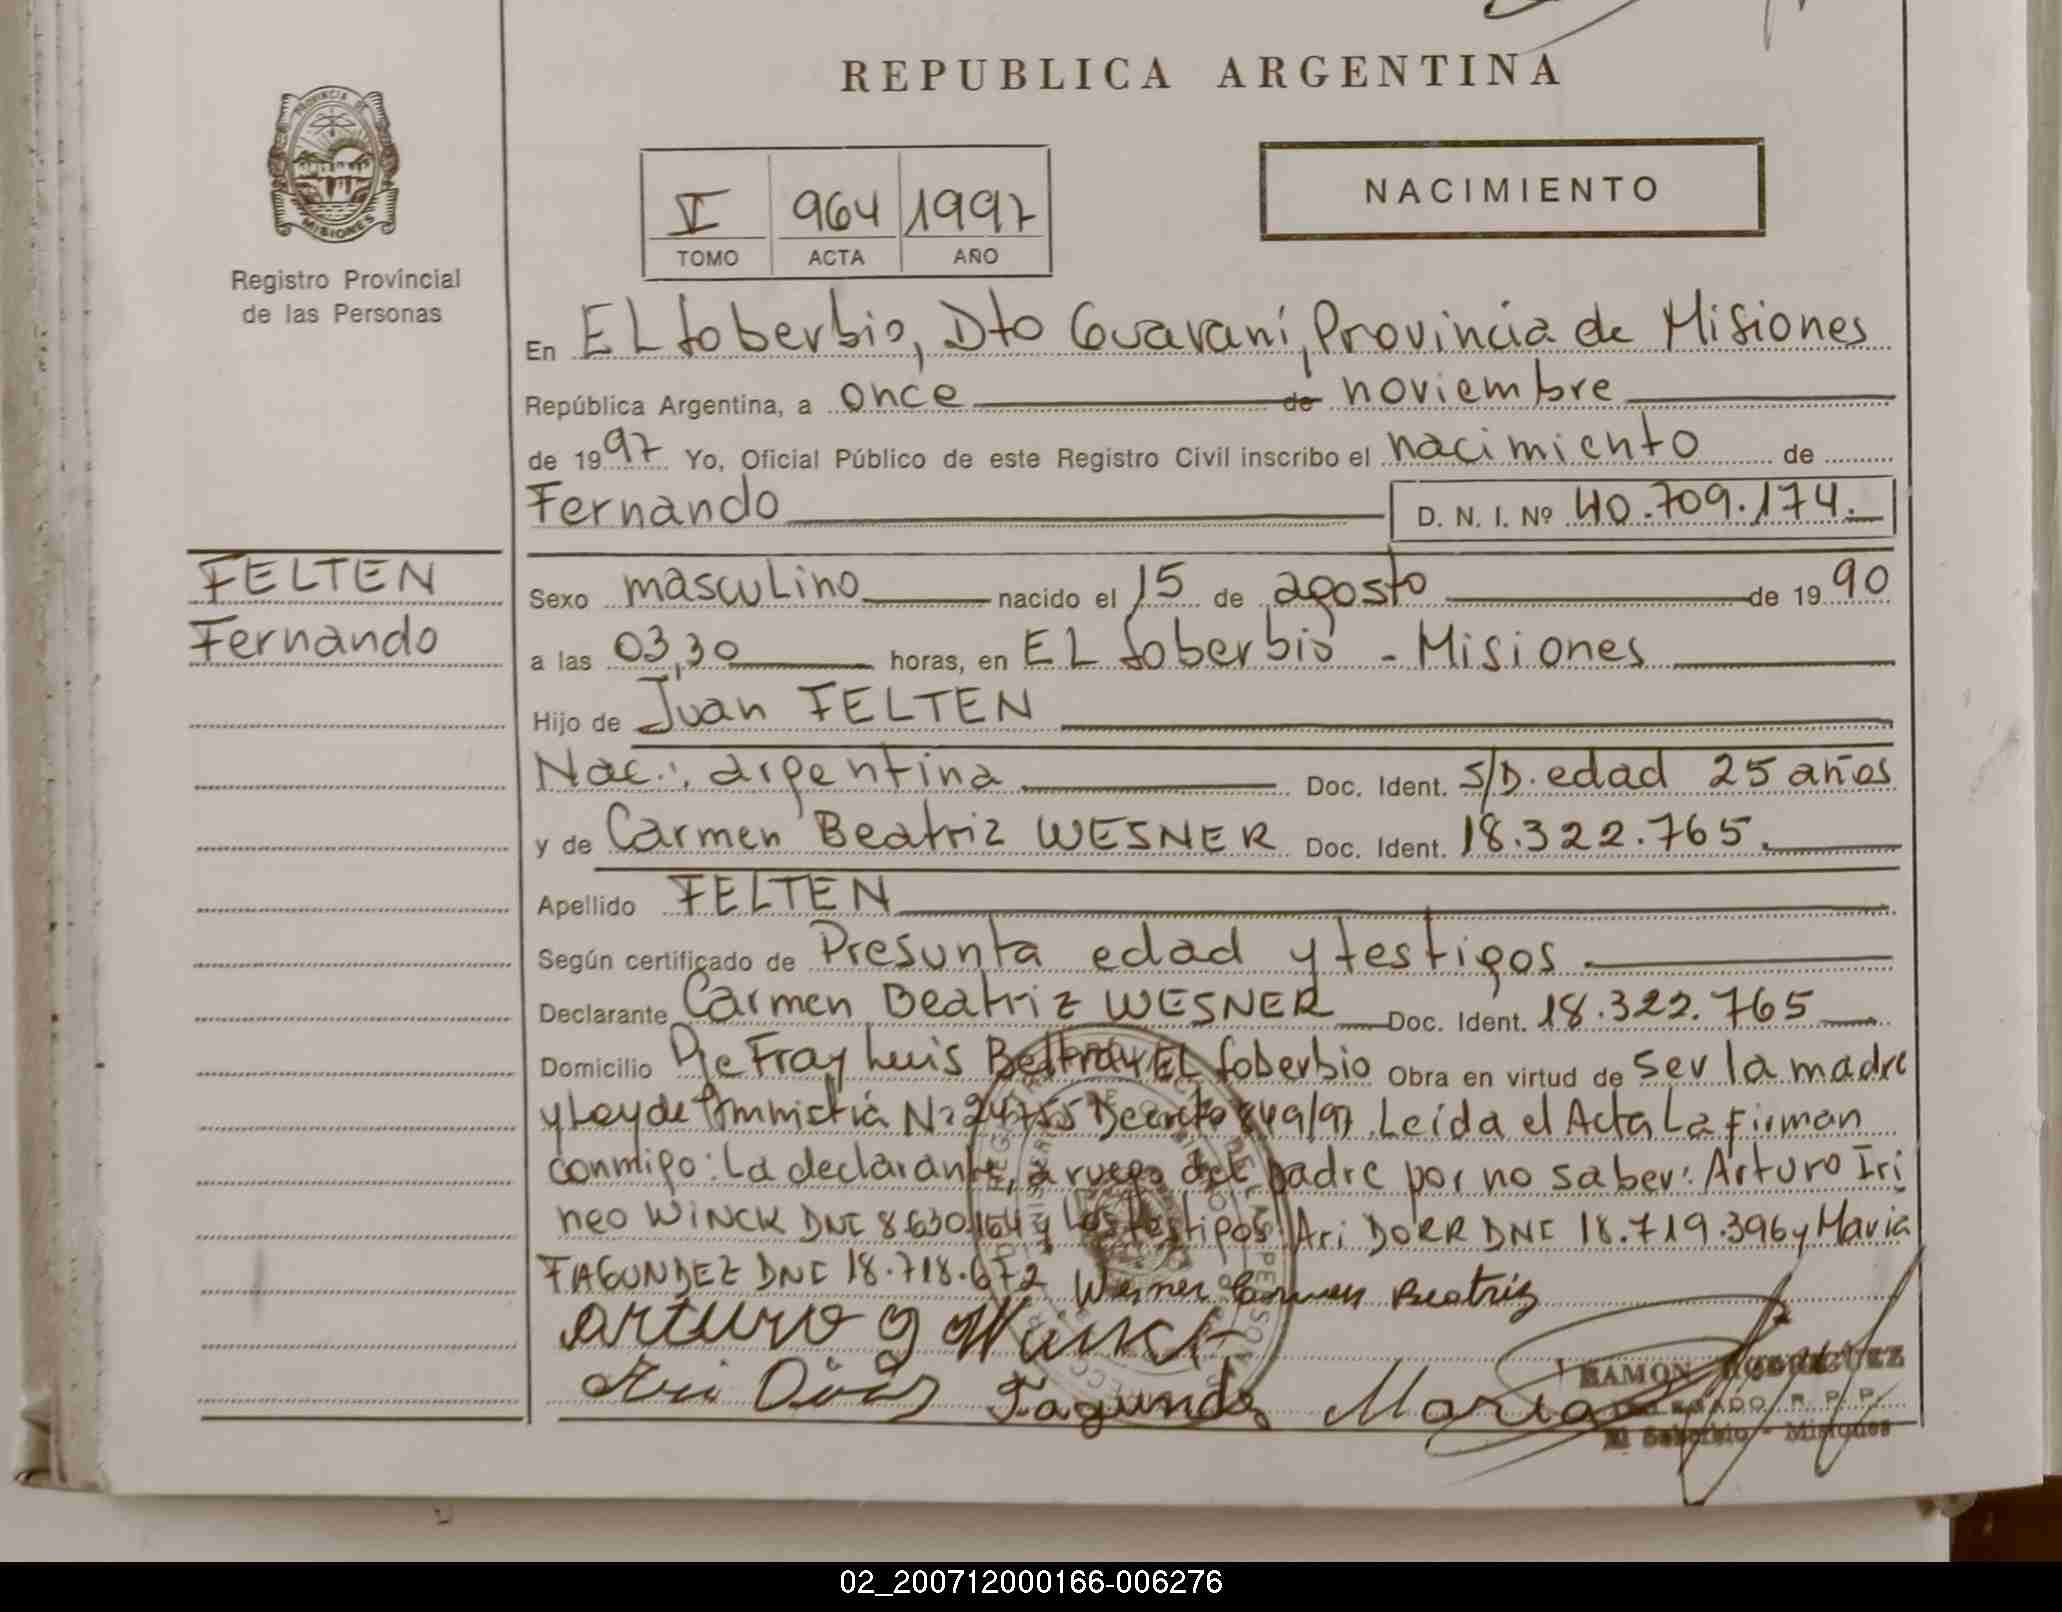 REPUBLICA ARGENTINA
PROVINCIA DE
MISIONES
Registro Provincial
de las Personas
V 964 1997
TOMO ACTA AÑO
NACIMIENTO
En EL Soberbio, Dto Guaraní, Provincia de Misiones
República Argentina, a once de noviembre
de 1997 Yo, Oficial Público de este Registro Civil inscribo el nacimiento de
Fernando D. N. I. Nº 40.709.174.
FELTEN
Fernando
Sexo masculino nacido el 15 de agosto de 1990
a las 03,30 horas, en EL Soberbio - Misiones
Hijo de Juan FELTEN
Nac.: argentina Doc. Ident. S/D. edad 25 años
y de Carmen Beatriz WESNER Doc. Ident. 18.322.765.
Apellido FELTEN
Según certificado de Presunta edad y testigos
Declarante Carmen Beatriz WESNER Doc. Ident. 18.322.765
Domicilio Pje Fray Luis Beltran EL Soberbio Obra en virtud de ser la madre
y Ley de Amnistia Nº 24755 Decreto 849/97. Leída el Acta La firman
conmigo: La declarante, a ruego del padre por no saber: Arturo Iri
neo WINCK DNI 8.630.164 y Los testigos: Ari DORR DNI 18.719.396 y Maria
FAGUNDEZ DNI 18.718.672 Wesner Carmen Beatriz
Arturo y Winck
Ari Dorr Fagundez Maria
RAMON RODRIGUEZ
DELEGADO R. P. P.
El Soberbio - Misiones
02_200712000166-006276